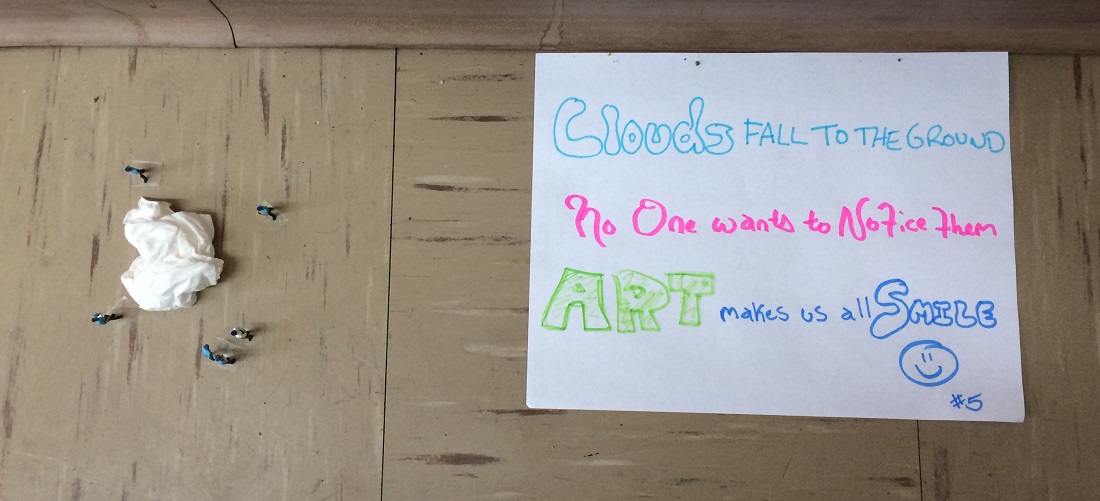 Clouds FALL TO THE GROUND
No One wants to Notice Them
ART makes us all SMILE
#5